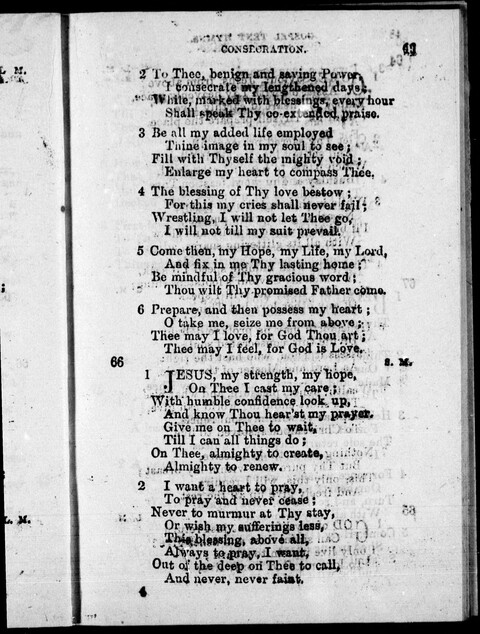 CONSECRATION.
2 To Thee, benign and saving Power,
I consecrate my lengthened days;
While, marked with blessings, every hour
Shall speak Thy co-extended praise.
3 Be all my added life employed
Thine image in my soul to see;
Fill with Thyself the mighty void;
Enlarge my heart to compass Thee.
4 The blessing of Thy love bestow;
For this my cries shall never fail;
Wrestling, I will not let Thee go,
I will not till my suit prevail.
5 Come then, my Hope, my Life, my Lord,
And fix in me Thy lasting home;
Be mindful of Thy gracious word;
Thou wilt Thy promised Father come.
6 Prepare, and then possess my heart;
O take me, seize me from above;
Thee may I love, for God Thou art;
Thee may I feel, for God is Love.
66 S. M.
1 JESUS, my strength, my hope,
On Thee I cast my care;
With humble confidence look up,
And know Thou hear'st my prayer.
Give me on Thee to wait,
Till I can all things do;
On Thee, almighty to create,
Almighty to renew.
2 I want a heart to pray,
To pray and never cease;
Never to murmur at Thy stay,
Or wish my sufferings less,
This blessing, above all,
Always to pray, I want,
Out of the deep on Thee to call,
And never, never faint.
L. M.
L. M.